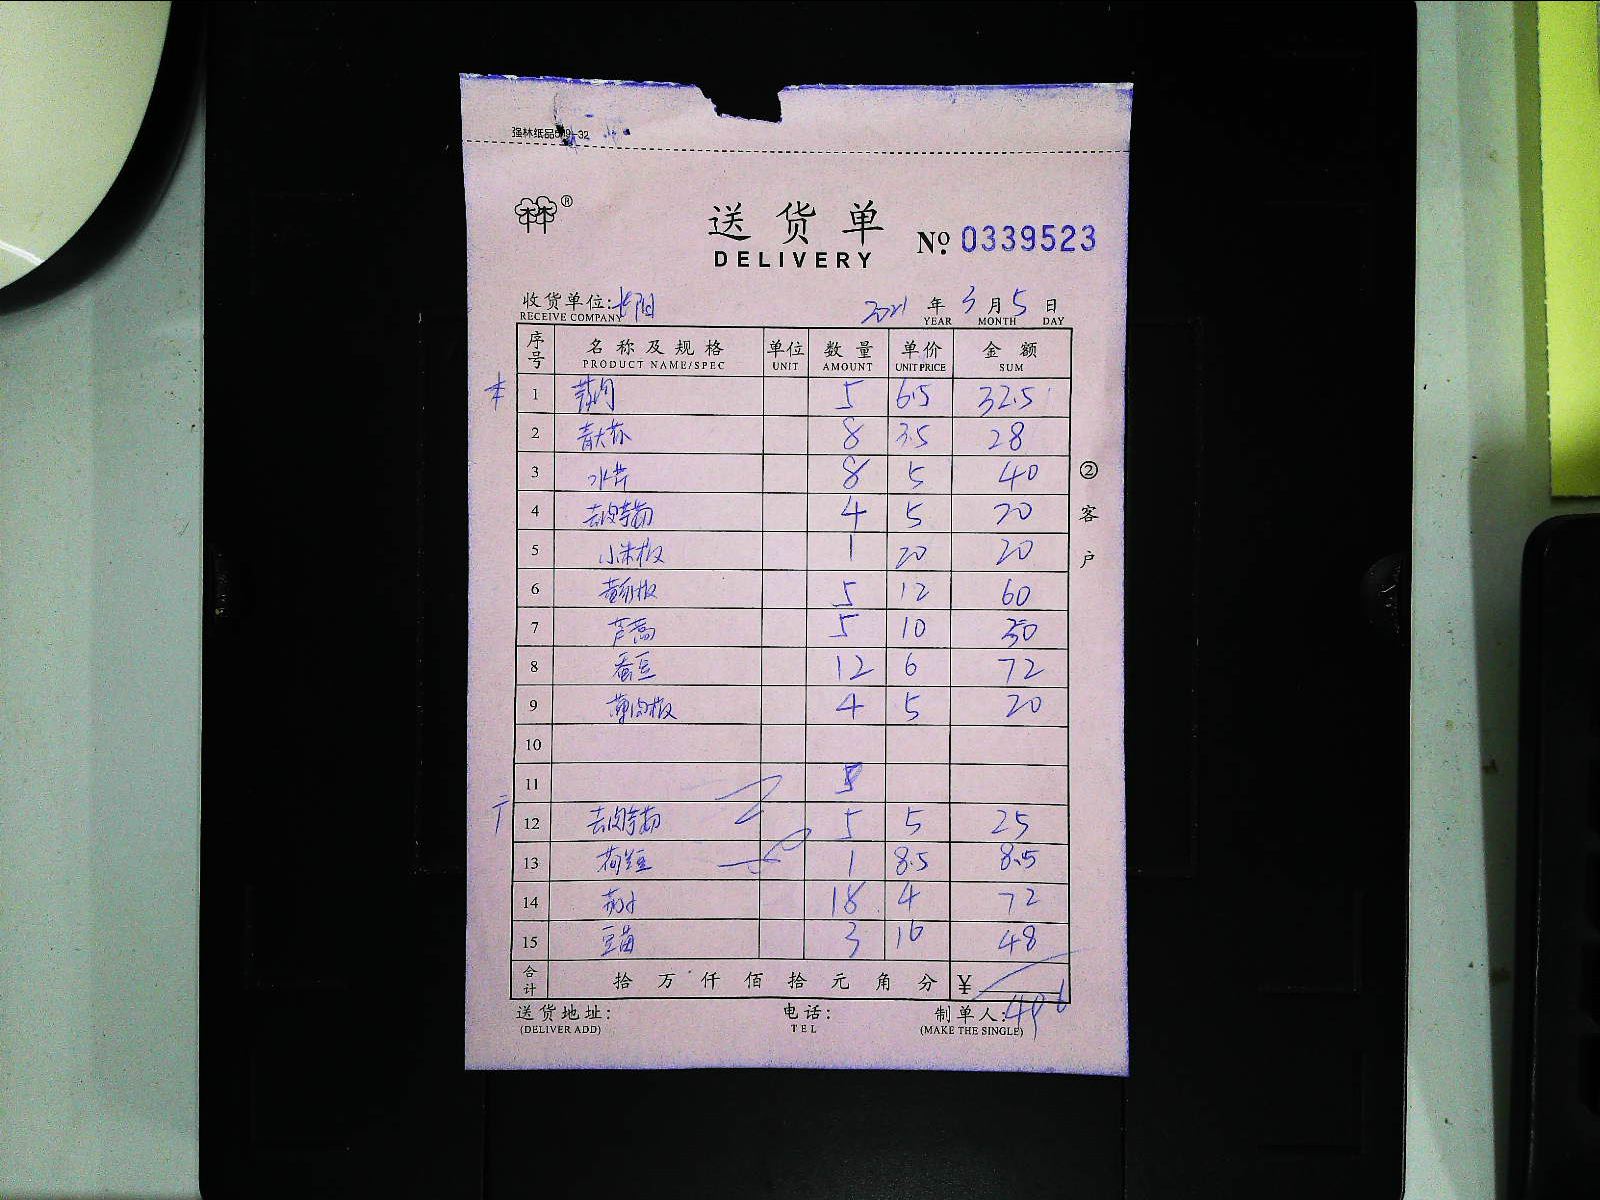 强林纸品539-32
林林 ®
送货单
DELIVERY
No. 0339523
收货单位: 长阳 2021 年 3 月 5 日
RECEIVE COMPANY YEAR MONTH DAY
序号 名称及规格 单位 数量 单价 金额
PRODUCT NAME/SPEC UNIT AMOUNT UNIT PRICE SUM
1 5 6.5 32.5
2 青大 8 3.5 28
3 水芹 8 5 40
4 去皮 4 5 20
5 小米椒 1 20 20
6 5 12 60
7 芦蒿 5 10 50
8 蚕豆 12 6 72
9 薄肉椒 4 5 20
10
11
12 去皮 5 5 25
13 荷兰豆 1 8.5 8.5
14 18 4 72
15 豆苗 3 16 48
合计 拾 万 仟 佰 拾 元 角 分 ¥ 496
送货地址: 电话: 制单人:
(DELIVER ADD) TEL (MAKE THE SINGLE)
②客户